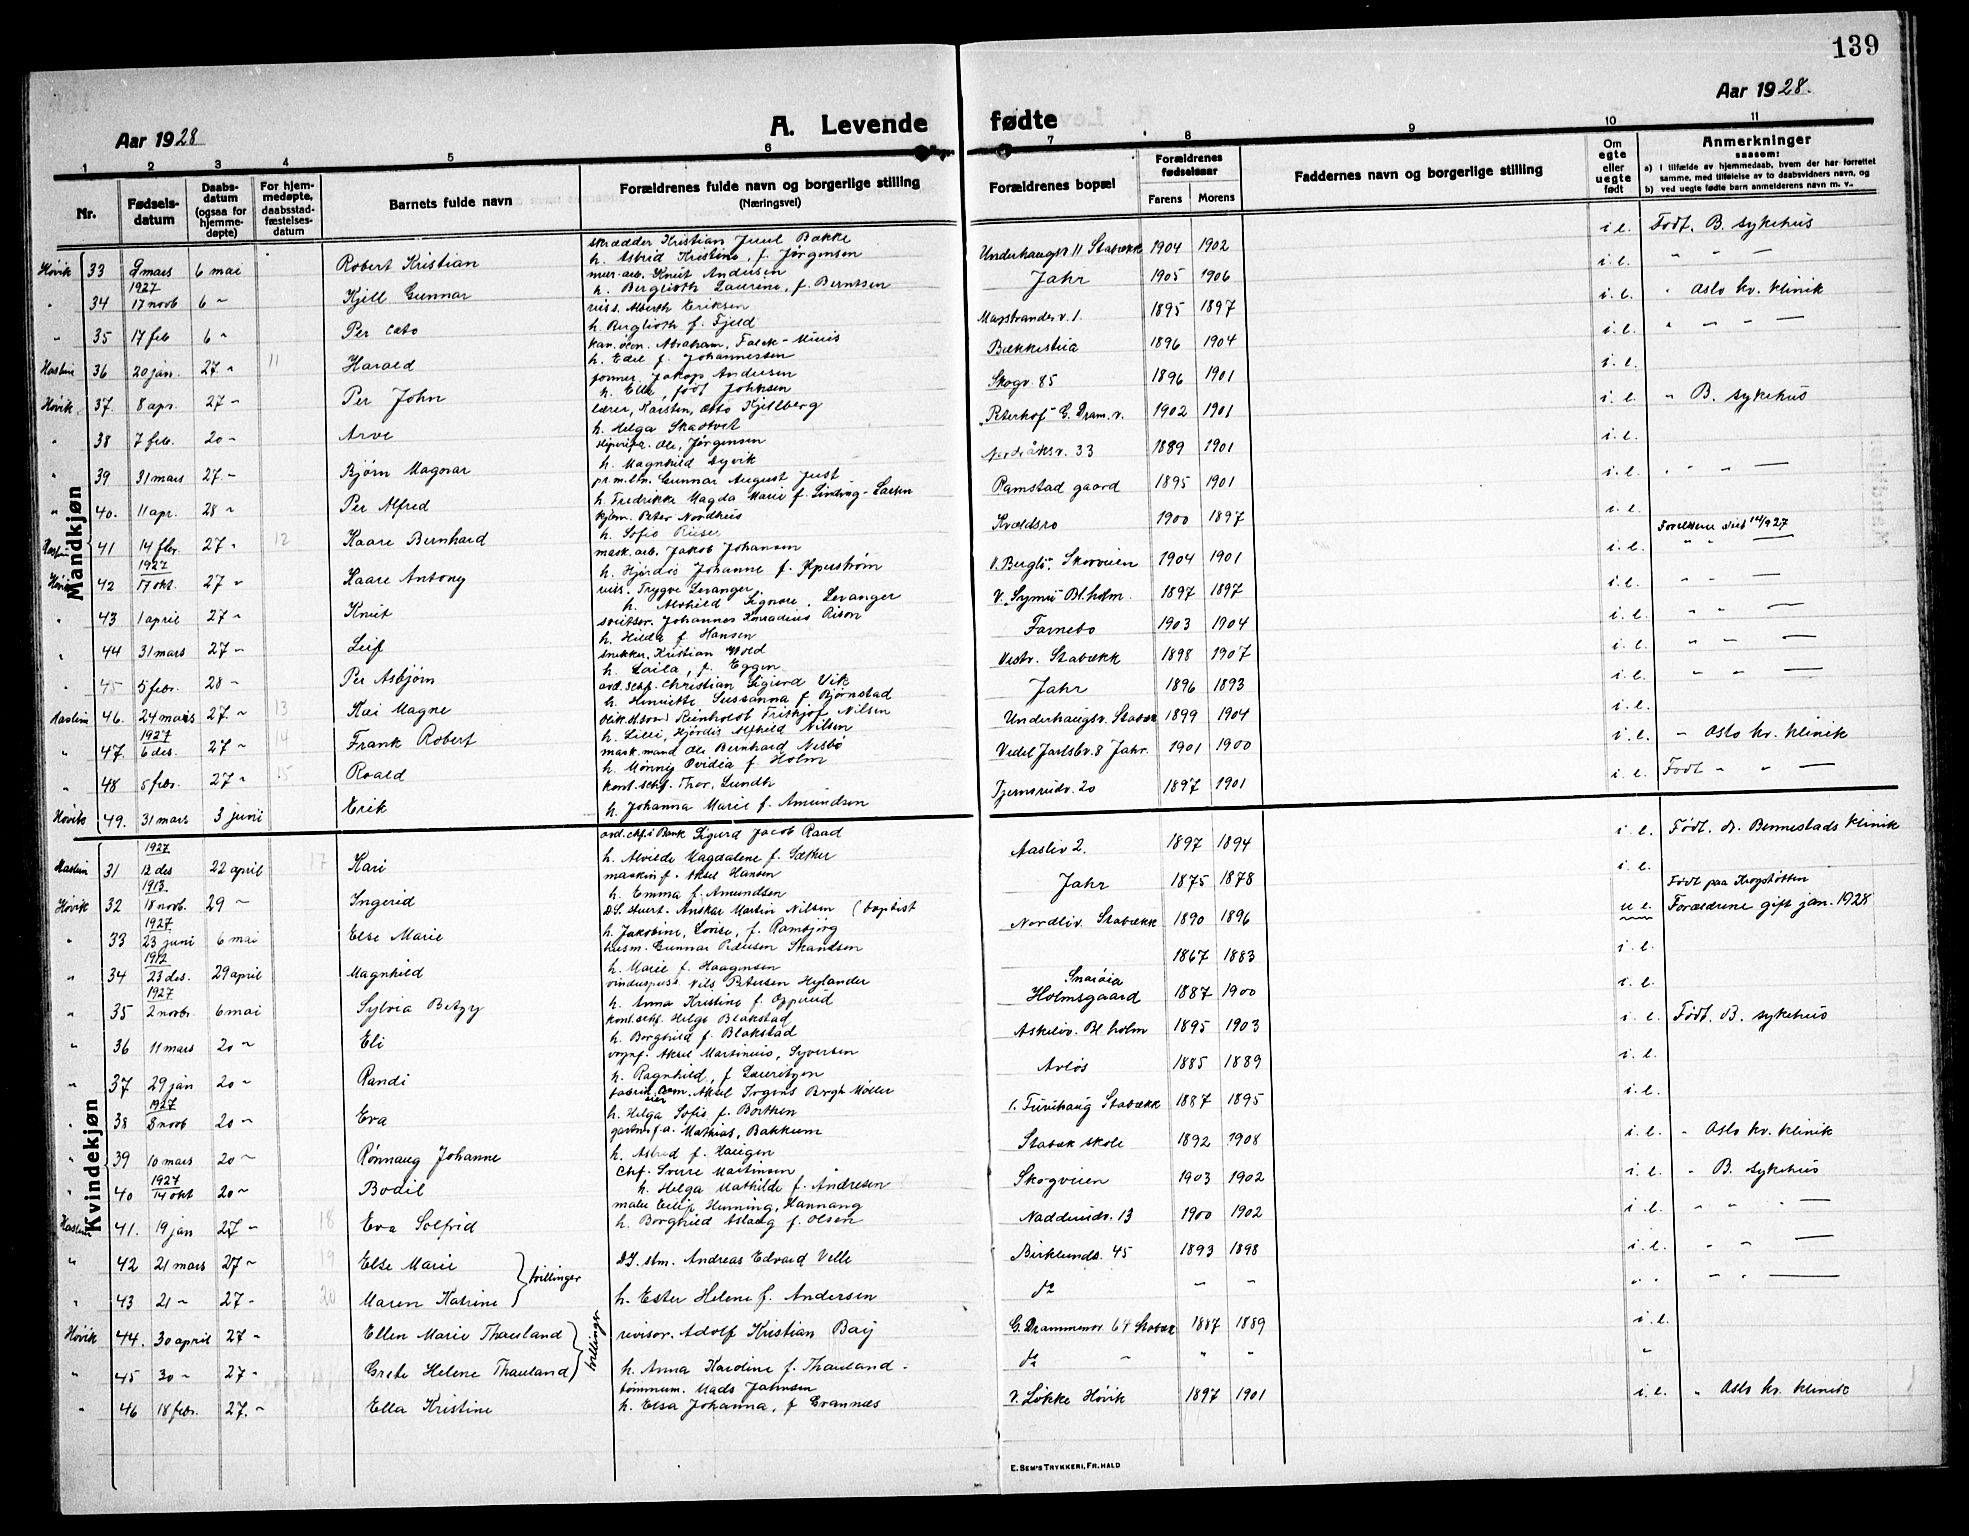 139
Aar 1928
A. Levende fødte
Aar 1928.
1 2 3 4 5 6 7 8 9 10 11
Nr.
Fødsels-
datum
Daabs-
datum
(ogsaa for
hjemme-
døpte)
For hjem-
medøpte,
daabsstad-
fæstelses-
datum
Barnets fulde navn
Forældrenes fulde navn og borgerlige stilling
(Næringsvei)
Forældrenes bopæl
Forældrenes
fødselsaar
Farens Morens
Faddernes navn og borgerlige stilling
Om
egte
eller
uegte
født
Anmerkninger
saasom:
a) I tilfælde av hjemmedaab, hvem der har forrettet
samme, med tilføielse av to daabsvidners navn, og
b) ved uegte fødte barn anmelderens navn m. v..
Mandkjøn
skrædder Kristian Juul Bakke
Høvik 33 9 mars 6 mai Robert Kristian h. Astrid Kristine, f. Jørgensen Underhaugsv 11 Stabækk 1904 1902 i.e. Født. B. sykehus
mur. arb. Knut Andersen
34 1927 17 novb 6 " Kjell Gunnar h. Berglioth Laurene, f. Berntsen Jahr 1905 1906 i.e. " " —
Alberth Eriksen
" 35 17 feb 6 " Per Cato h. Berglioth f. Fjeld Magstrandev. 1. 1895 1897 i.e. " Oslo kv. klinik
Abraham, Falck-Muus
Haslum 36 20 jan. 27 " 11 Harald h. Edel f. Johannessen Bækkestua 1896 1904 i.e. " " " —
former. Jakop Andersen
Høvik 37. 8 apr. 27 " Per John h. Ella, født Johnsen Skogv. 85 1896 1901 i.e.
lærer, Karsten, Otto Kjelberg
" 38 7 feb. 20 " Arve h. Helga Skadtvet Peterhof G. Dram. v. 1902 1901 i.e. " B. sykehus
Ole, Jørgensen
" 39 31 mars 27 " Bjørn Magnar h. Magnhild Dyvik 33 1889 1901 i.e.
Gunnar August Just
" 40. 11 apr. 28 " Per Alfred h. Fredrikke Magda Marie f. Lindvig-Larsen Ramstad gaard 1895 1901 i.e. " " —
Peter Nordhus
Haslum 41 14 febr. 27 " 12 Kaare Bernhard h. Sofie Riise Kvældsro 1900 1897 i.e.
mask. arb. Jakob Johansen
Høvik 42 1927 17 okt. 27 " Kaare Antony h. Hjørdis Johanne f. V. Bergli Skovveien 1904 1901 i.e.
Trygve Levanger,
" 43 1 april 27 " Knut h. Alvhild Signore Levanger V. Symri Bl. holm. 1897 1897 i.e. " " —
sveitser. Johannes Konradius Rison
" 44 31 mars 27 " Leif h. Hilda f. Hansen Farnebo 1903 1904 " " —
snekker. Kristian Wold
" 45 5 febr. 28 " Per Asbjørn h. Laila, f. Eggen Vestv. Stabækk 1898 1907 i.e. " " —
Christian Sigurd Vik
Haslum 46. 24 mars 27. " 13 Kai Magne h. Henriette Sussanna f. Bjørnstad Jahr 1896 1893 i.e. " " —
Reinholdt Frithjof Nilsen
" 47. 1927 6 des. 27 " 14 Frank Robert h. Lilli, Hjørdis Alfhild Nilsen Underhaugsv. Stabæk 1899 1904 i.e.
mask. mand Ole Bernhard Nesbø
" 48 5 febr. 27 " 15 Roald h. Mønnig Ovidia f. Holm Vedel Jarlsbv. 8 Jahr. 1901 1900 i.e. " Oslo kv. klinik
kont. schf. Thor, Lundth
Høvik 49. 31 mars 3 juni Erik h. Johanna Marie f. Amundsen Tjernsrudv. 20 1897 1901 i.e. Født " " —
Kvindekjøn
avd. chf. i Bank Sigurd Jacob Raad
Haslum 31 1927 12 des 22 april 17 Kari h. Alvilde Magdalene f. Sæther Aasliv 2. 1897 1894 i.e. Født. dr. Bennestads klinik
maskinf. Aksel Hansen
Høvik 32 1913 18 novb. 29 " Ingerid h. Emma f. Amundsen Jahr 1875 1878 i.e. Født paa Krogstøtten
Anskar Martin Nilsen (baptist
" 33 1927 23 juni 6 mai Else Marie h. Jakobine, Lovise, f. Rambjørg Nordliv. Stabækk 1890 1896 u e. Forældrene gift jan. 1928
husm. Gunnar Petersen Skandsen
" 34 1912 23 des. 29 april Magnhild h. Marie f. Haagensen 1867 1883 i.e.
vinduspuss. Nils Petersen Hylander
" 35 1927 2 novbr. 6 mai Sylvia Betzy h. Anna Kristine f. Opperud Snarøia Holmsgaard 1887 1900 i.e.
kont. schf. Helge Blakstad
" 36 11 mars 20 " Eli h. Borghild f. Blakstad Askeliv. Bl. holm 1895 1903 i.e. Født. B. sykehus
vognf. Aksel Martinius, Syversen
" 37 29 jan 20 " Randi h. Ragnhild, f. Lauritzen Avløs 1885 1889 i.e.
Aksel Irgens Bergh Møller
" 38 1927 8 novb 20 " Eva h. Helga Sofie f. Borthen 1. Furuhaug Stabækk 1887 1895 i.e.
Mathias, Bakkum
" 39 10 mars 20 " Rønnaug Johanne h. Astrid f. Haugen Stabæk skole 1892 1908 i.e. " Oslo kv. klinik
Chf. Sverre Martinsen
" 40 1927 14 okt 20 " Bodil h. Helga Mathilde f. Andresen Skogveien 1903 1902 i.e. " B. sykehus
maler Eilif Henning, Hannang
Haslum 41. 19 jan 27 " 18 Eva Solfrid h. Borghild Aslaug f. Olsen Nadderudv. 13 1900 1902 i.e. " " —
" 42 21 mars 27 " 19 Else Marie } tvillinger Andreas Edvard Velle Birklundv. 45 1893 1898 i.e. " " —
" 43 21 " 27 " 20 Maren Katrine h. Ester Helene f. Andersen do " " " " " " —
Høvik 44. 30 april 27 " Ellen Marie Thauland } tvillinger revisor. Adolf Kristian Bay G. Drammensv 64 Stabæk 1887 1889 i.e.
" 45 30 " 27 " Grete Helene Thauland h. Anna Karoline f. Thauland do " " " "
tømmerm. Mads Jahnsen
" 46 18 febr. 27. " Ella Kristine h. Elsa Johanna, f Grannæs V. Løkke Høvik 1897 1901 i.e. " Oslo kv. klinik
E. SEM'S TRYKKERI, FR. HALD